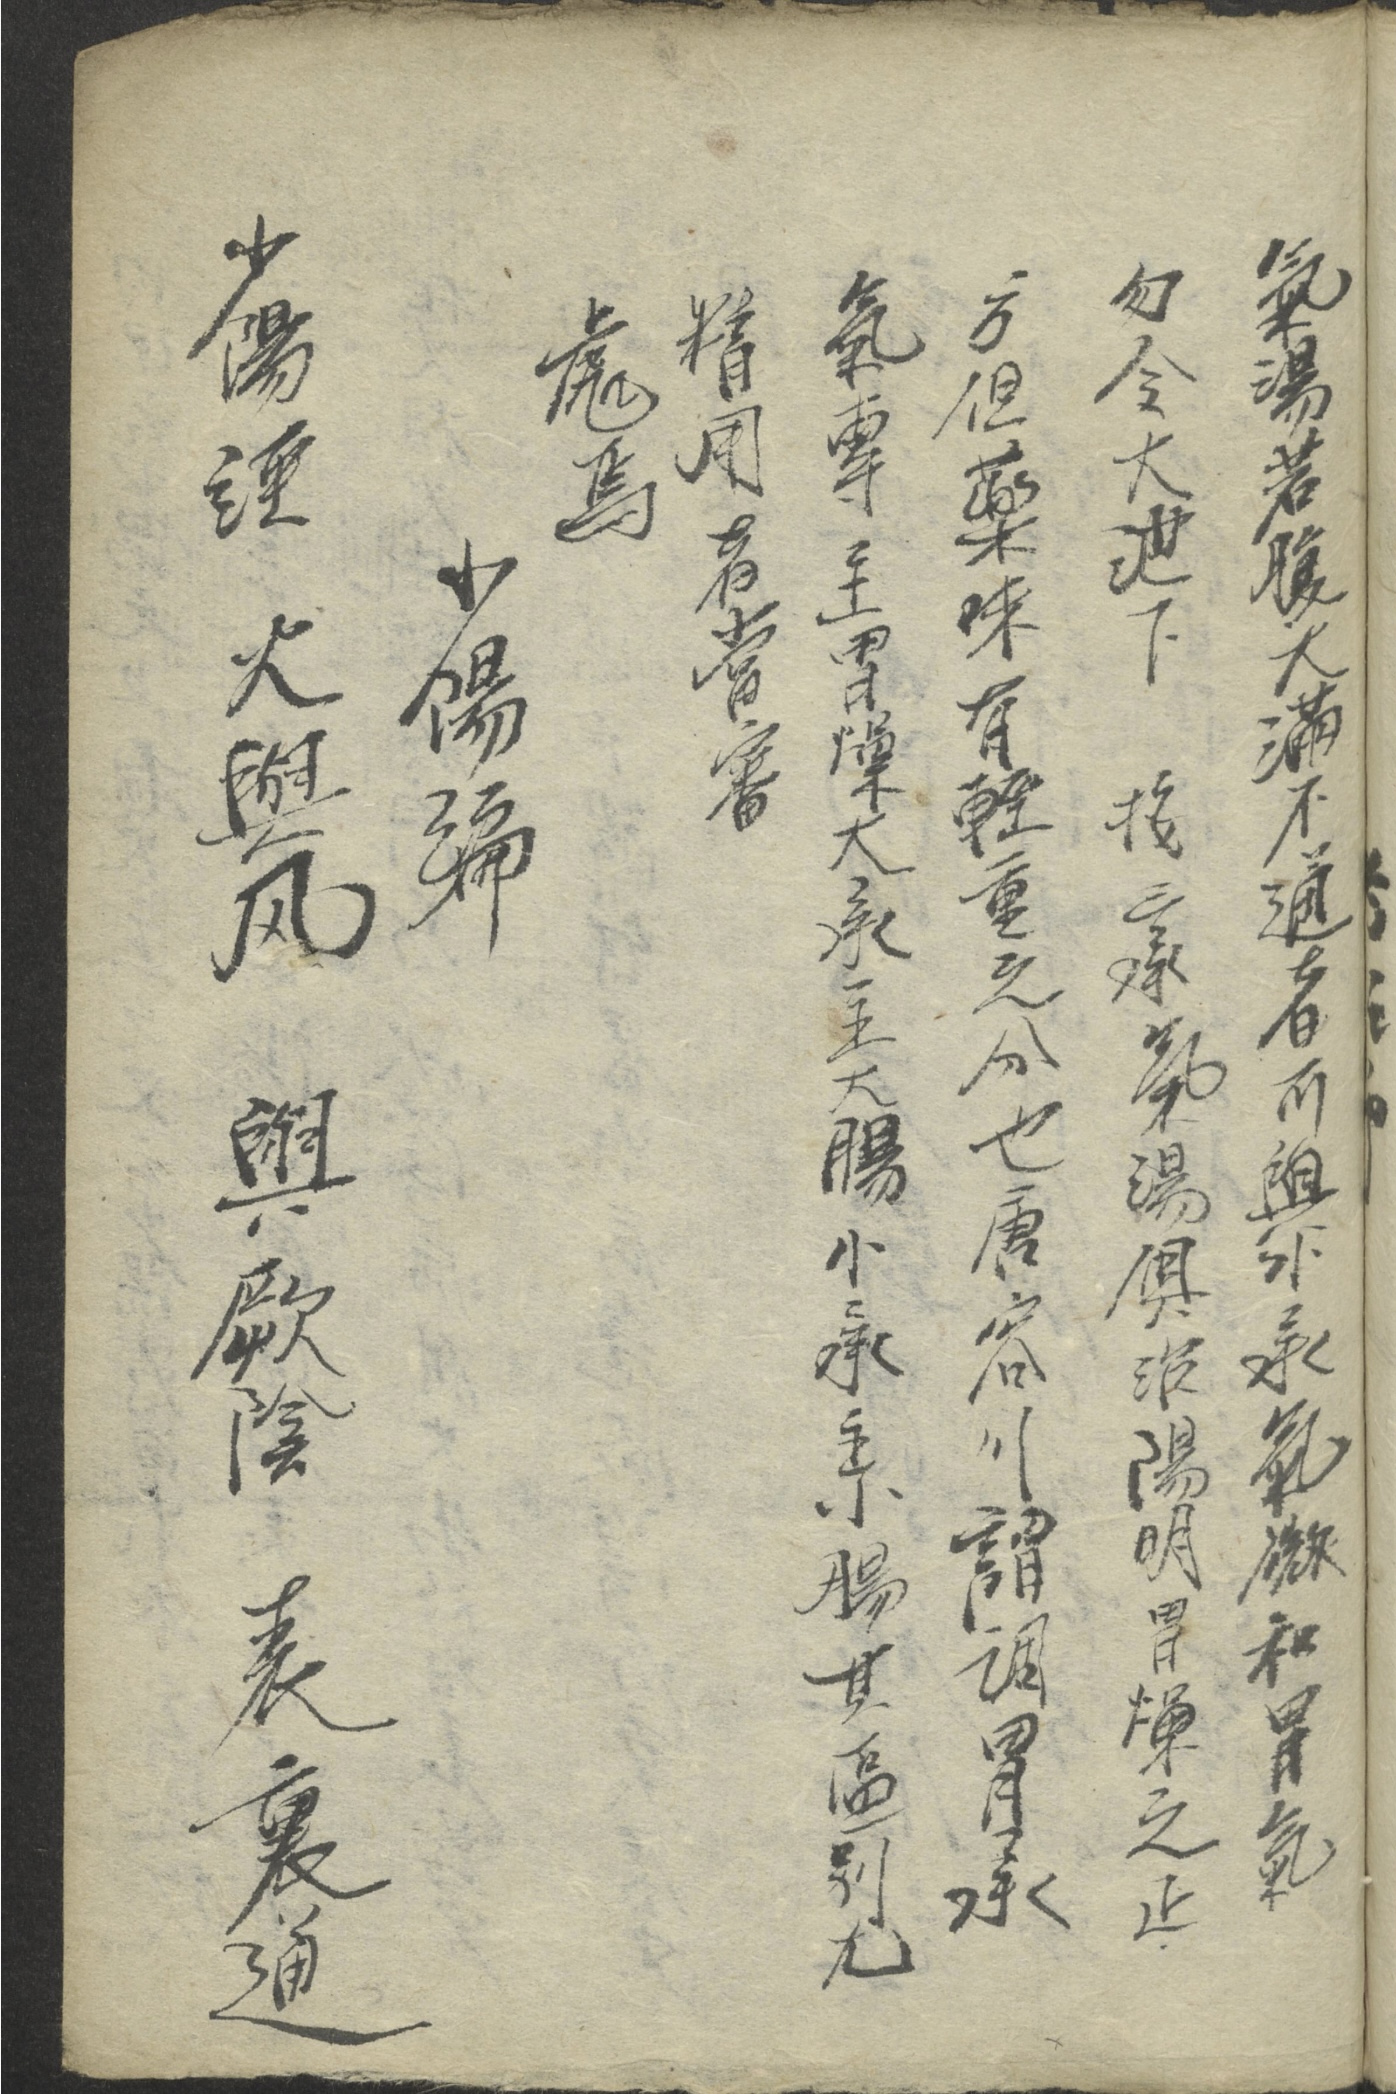 氣湯若腹大滿不通者可與小承氣微和胃氣
勿令大泄下 按三承氣湯俱治陽明胃燥之正
方但藥味有輕重之分也唐容川謂調胃承
氣專主胃燥大承主大腸小承主小腸其區別尤
精用者當審
處焉
少陽編
少陽証 火與风 與厥陰 表裏通